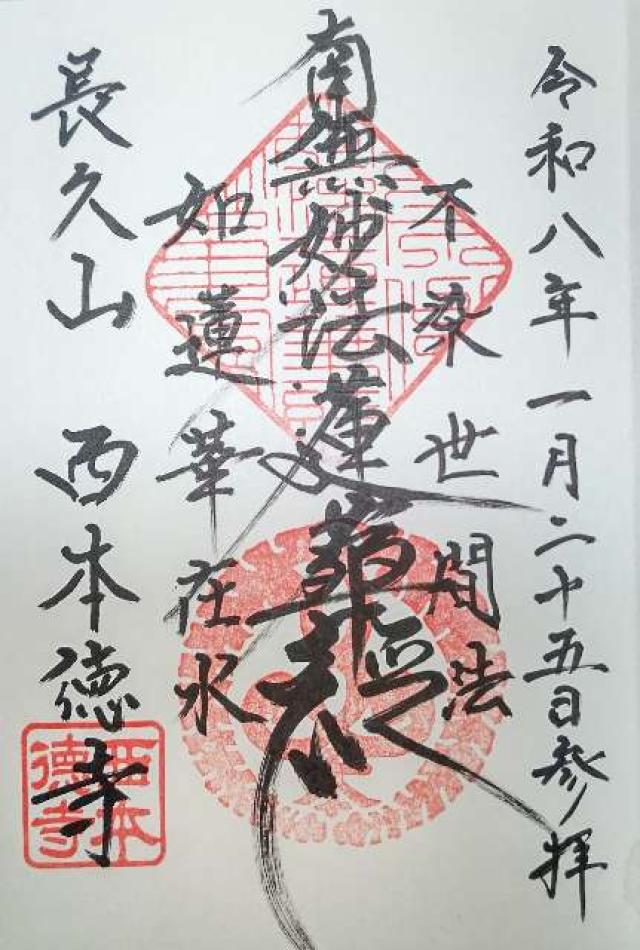 令和八年一月二十五日参拝
不染世間法
南無妙法蓮華経
如蓮華在水
長久山 西本徳寺
西本徳寺